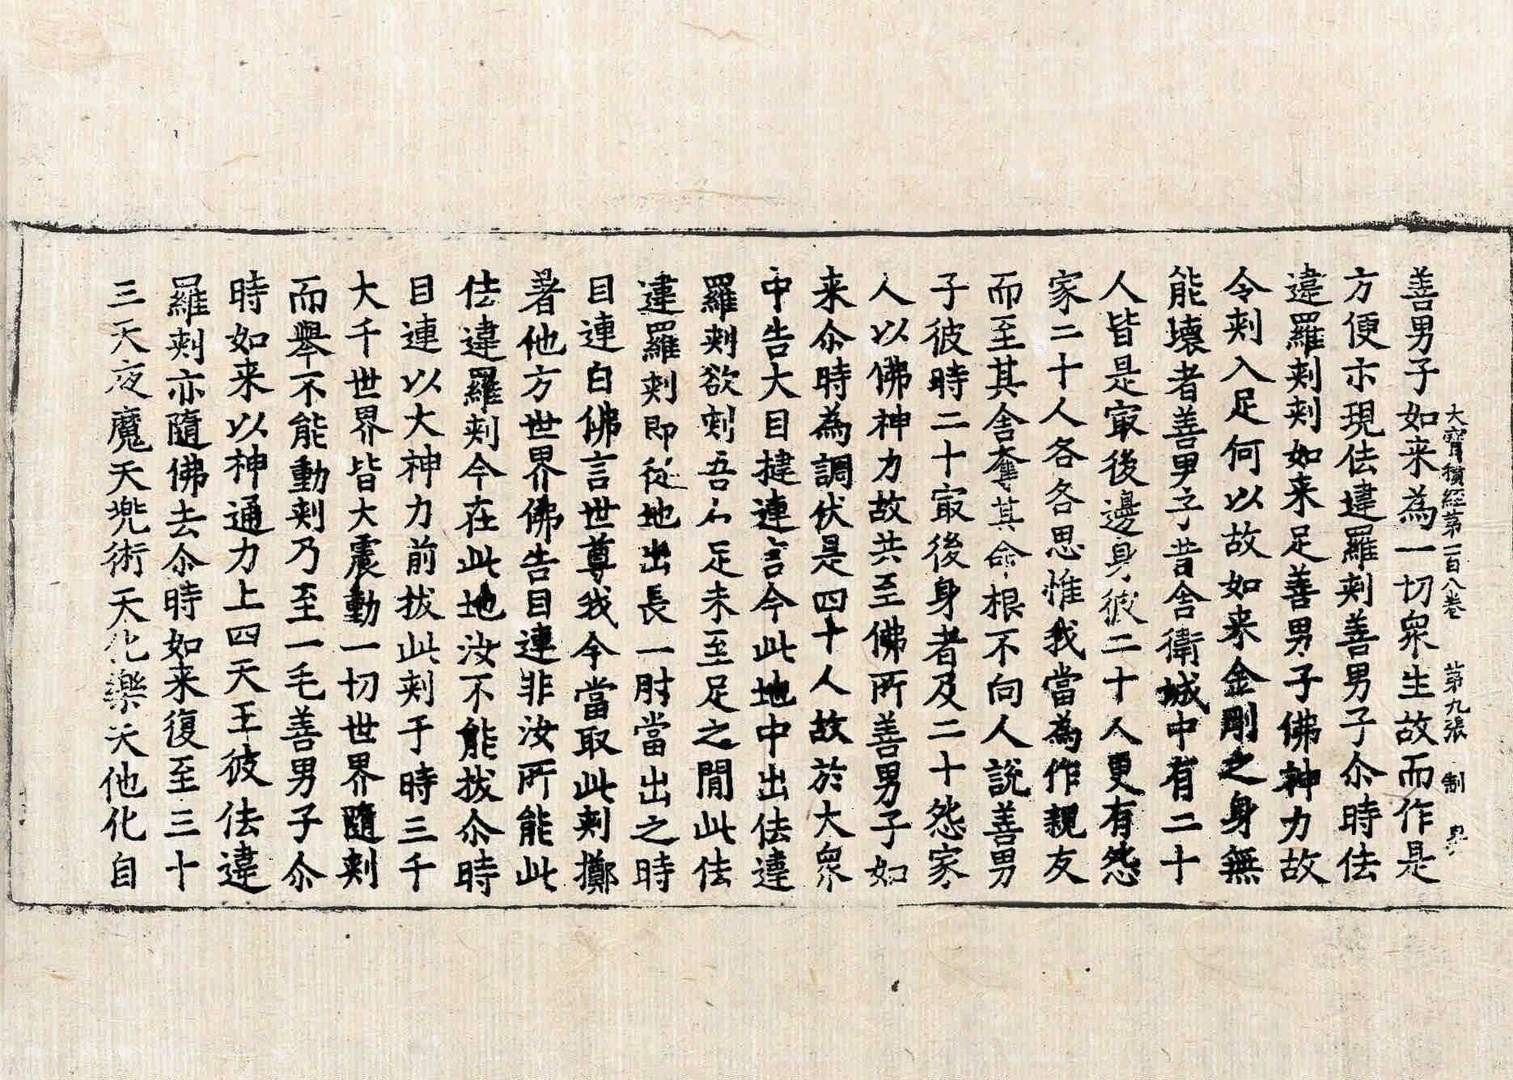 大寶積經第一百八卷　第九張　制
善男子如来為一切衆生故而作是
方便示現佉違羅刾善男子尒時佉
違羅刾刾如来足善男子佛神力故
令刾入足何以故如来金剛之身無
能壊者善男子昔舎衛城中有二十
人皆是㝡後邊身彼二十人更有怨
家二十人各各思惟我當為作親友
而至其舎奪其命根不向人說善男
子彼時二十㝡後身者及二十怨家
人以佛神力故共至佛所善男子如
来尒時為調伏是四十人故於大衆
中告大目揵連言今此地中出佉違
羅刾欲刾吾右足未至足之間此佉
違羅刾即從地出長一肘當出之時
目連白佛言世尊我今當取此刾擲
著他方世界佛告目連非汝所能此
佉違羅刾今在此地汝不能拔尒時
目連以大神力前拔此刾于時三千
大千世界皆大震動一切世界隨刾
而舉不能動刾乃至一毛善男子尒
時如来以神通力上四天王彼佉違
羅刾亦隨佛去尒時如来復至三十
三天夜魔天兠術天化樂天他化自